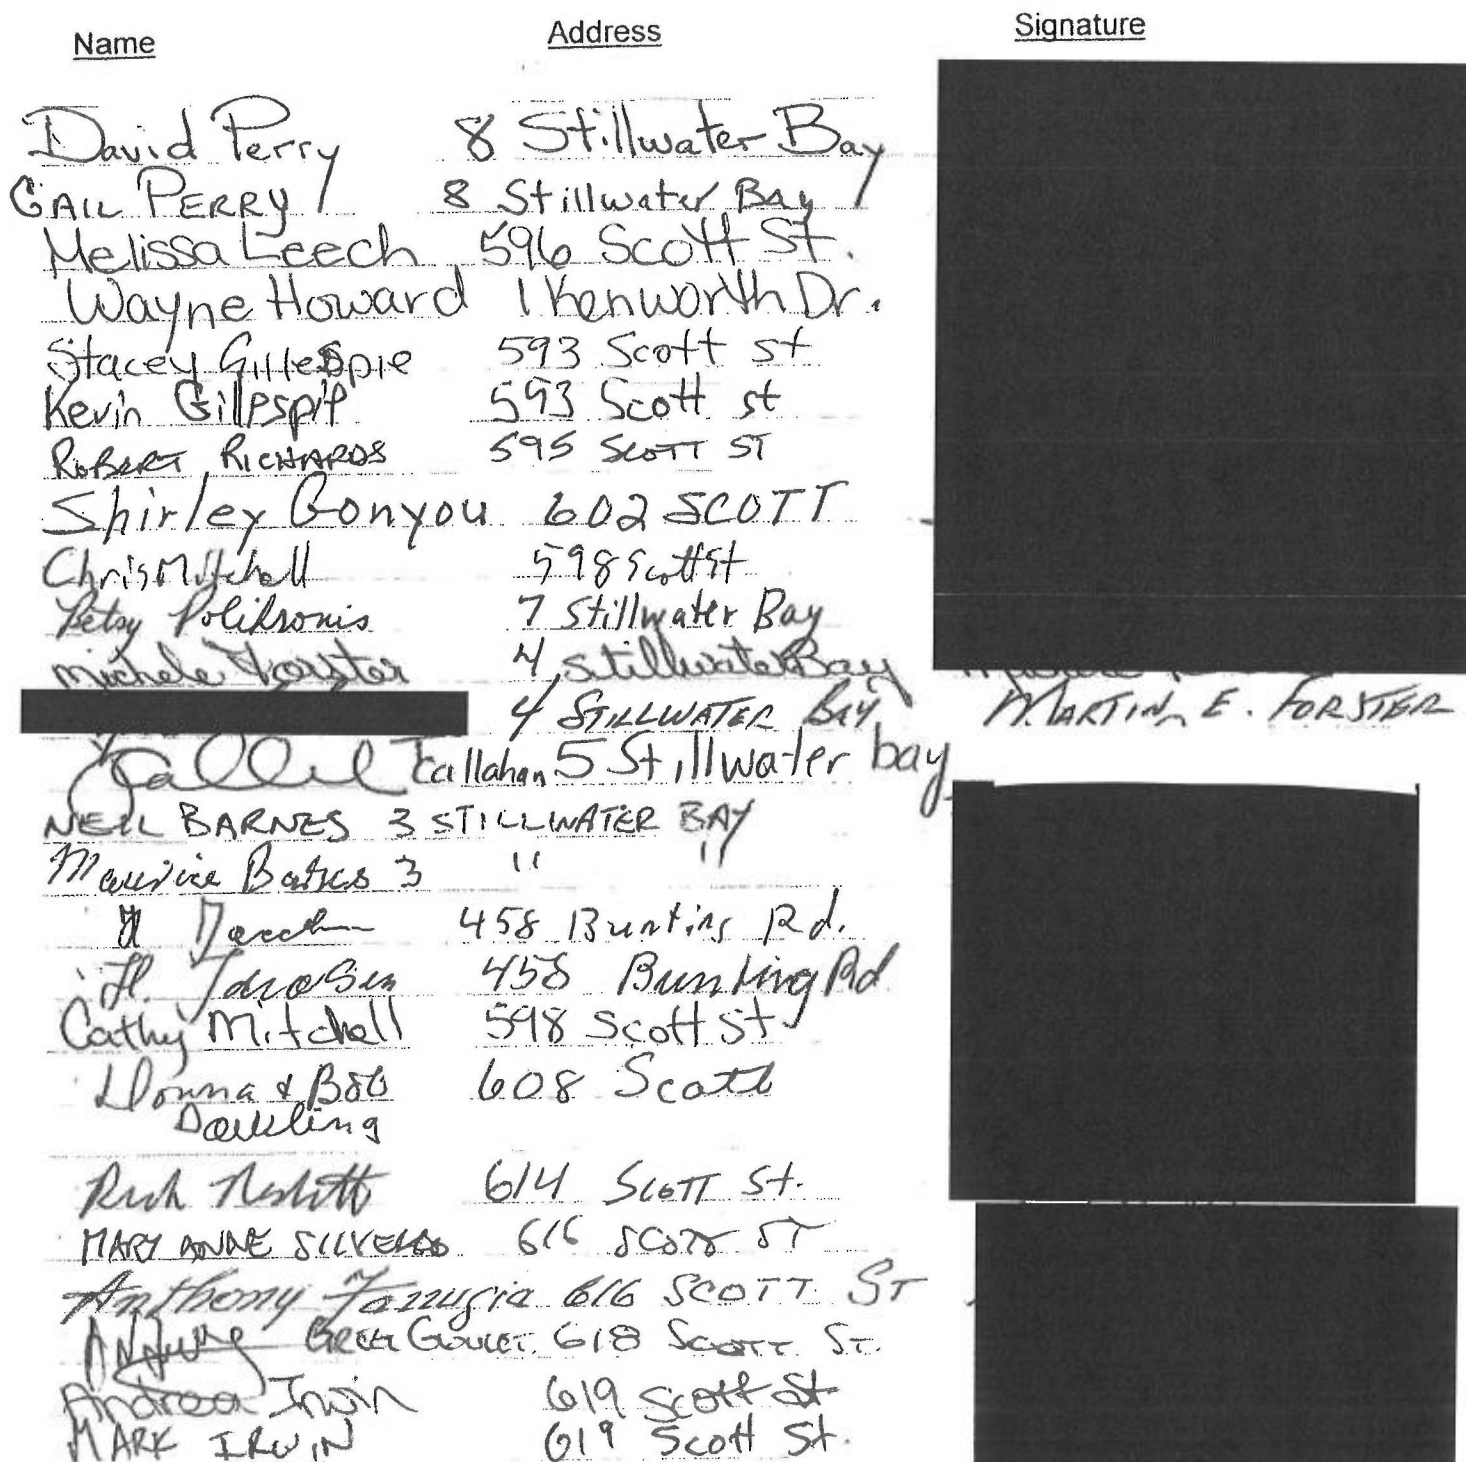 Name Address Signature
David Perry 8 Stillwater Bay
GAIL PERRY 8 Stillwater Bay
Melissa Leech 596 Scott St.
Wayne Howard 1 Kenworth Dr.
Stacey Gillespie 593 Scott st
Kevin Gillespie 593 Scott st
ROBERT RICHARDS 595 SCOTT ST
Shirley Gonyou 602 SCOTT
Chris Mitchell 598 Scott St
Betsy 7 Stillwater Bay
Michele Forster 4 Stillwater Bay
4 STILLWATER BAY MARTIN E. FORSTER
Callahan 5 Stillwater bay
NEIL BARNES 3 STILLWATER BAY
Barnes 3 " "
458 Bunting Rd.
458 Bunting Rd
Cathy Mitchell 598 Scott St
Donna & Bob 608 Scott
614 SCOTT St.
MARY ANNE 616 SCOTT ST
Anthony 616 SCOTT ST
618 SCOTT ST.
Andrea Irwin 619 Scott St
MARK IRWIN 619 Scott St.